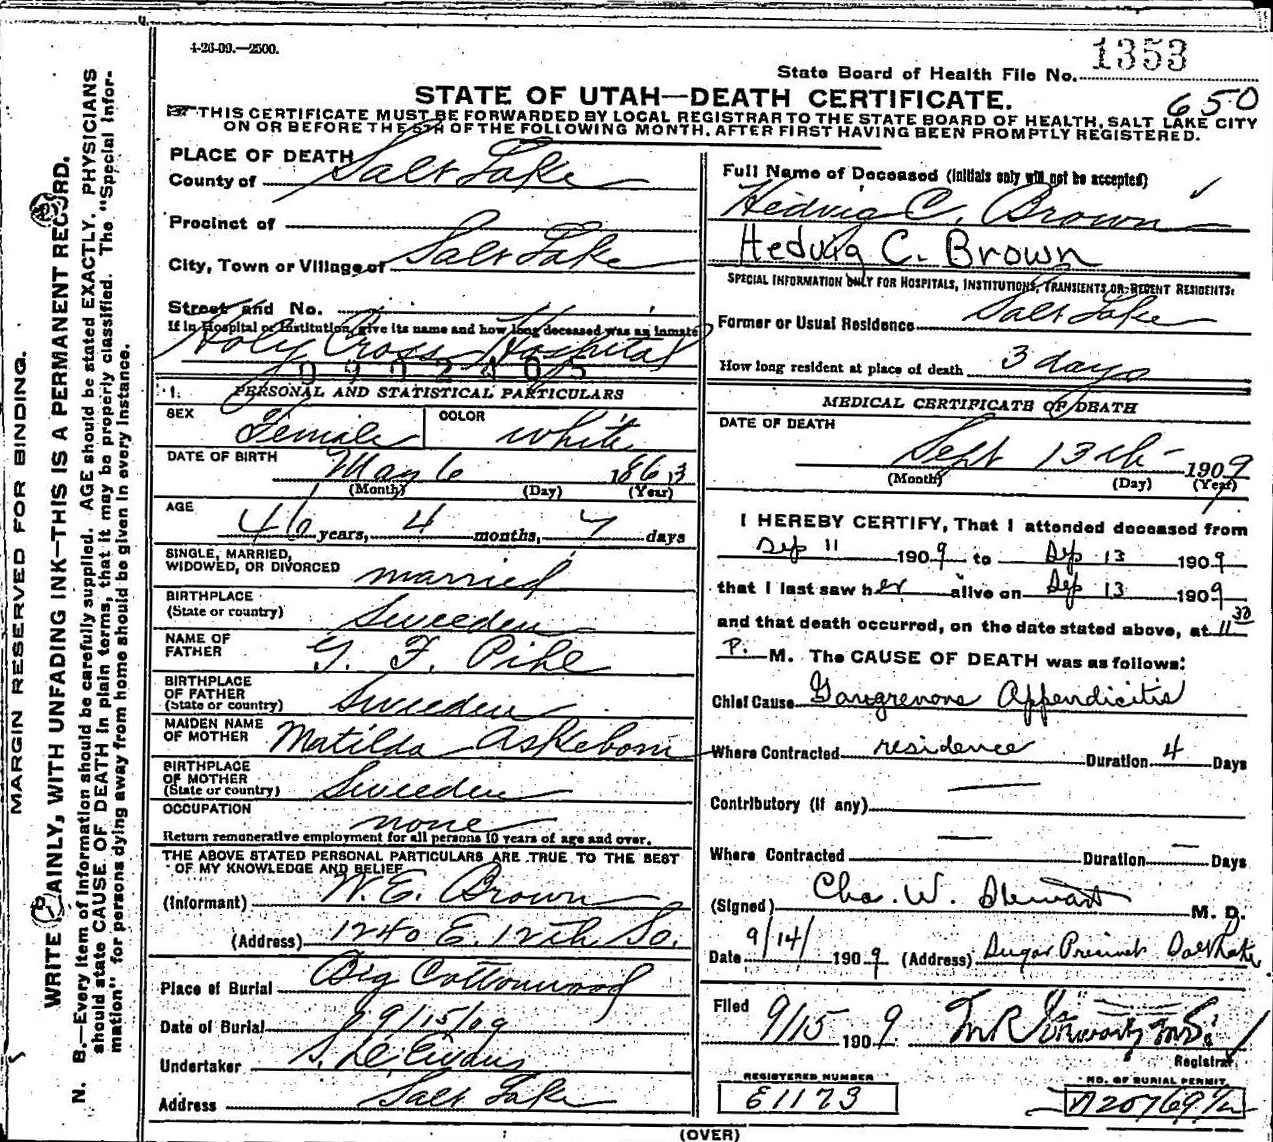 4-26-09.—2500.
1353
State Board of Health File No.
STATE OF UTAH—DEATH CERTIFICATE.
650
THIS CERTIFICATE MUST BE FORWARDED BY LOCAL REGISTRAR TO THE STATE BOARD OF HEALTH, SALT LAKE CITY
ON OR BEFORE THE 5TH OF THE FOLLOWING MONTH, AFTER FIRST HAVING BEEN PROMPTLY REGISTERED.
MARGIN RESERVED FOR BINDING.
WRITE PLAINLY, WITH UNFADING INK—THIS IS A PERMANENT RECORD.
N. B.—Every item of information should be carefully supplied. AGE should be stated EXACTLY. PHYSICIANS
should state CAUSE OF DEATH in plain terms, that it may be properly classified. The "Special Infor-
mation" for persons dying away from home should be given in every instance.
PLACE OF DEATH
County of Salt Lake
Precinct of
City, Town or Village of Salt Lake
Street and No.
If in Hospital or Institution, give its name and how long deceased was an inmate
Holy Cross Hospital
0902405
1. PERSONAL AND STATISTICAL PARTICULARS
SEX Female COLOR White
DATE OF BIRTH May 6 1863
(Month) (Day) (Year)
AGE 46 years, 4 months, 7 days
SINGLE, MARRIED,
WIDOWED, OR DIVORCED married
BIRTHPLACE
(State or country) Sweeden
NAME OF
FATHER G. F. Pihl
BIRTHPLACE
OF FATHER
(State or country) Sweeden
MAIDEN NAME
OF MOTHER Matilda Asklebom
BIRTHPLACE
OF MOTHER
(State or country) Sweeden
OCCUPATION none
Return remunerative employment for all persons 10 years of age and over.
THE ABOVE STATED PERSONAL PARTICULARS ARE TRUE TO THE BEST
OF MY KNOWLEDGE AND BELIEF
(Informant) W. E. Brown
(Address) 1240 E. 12th So.
Place of Burial Big Cottonwood
Date of Burial 9/15/09
Undertaker S. D. Evans
Address Salt Lake
Full Name of Deceased (Initials only will not be accepted)
Hedvig C. Brown
Hedvig C. Brown
SPECIAL INFORMATION ONLY FOR HOSPITALS, INSTITUTIONS, TRANSIENTS OR RECENT RESIDENTS:
Former or Usual Residence Salt Lake
How long resident at place of death 3 days
MEDICAL CERTIFICATE OF DEATH
DATE OF DEATH
Sept 13th 1909
(Month) (Day) (Year)
I HEREBY CERTIFY, That I attended deceased from
Sep 11 1909 to Sep 13 1909
that I last saw her alive on Sep 13 1909
and that death occurred, on the date stated above, at 11 30
P. M. The CAUSE OF DEATH was as follows:
Chief Cause Gangrenous Appendicitis
Where Contracted residence Duration 4 Days
Contributory (if any) —
Where Contracted — Duration — Days
(Signed) Chas. W. Stewart M. D.
Date 9/14/ 1909 (Address) Sugar Precinct Salt Lake
Filed 9/15 1909
Registrar
REGISTERED NUMBER
E1173
NO. OF BURIAL PERMIT
(OVER)